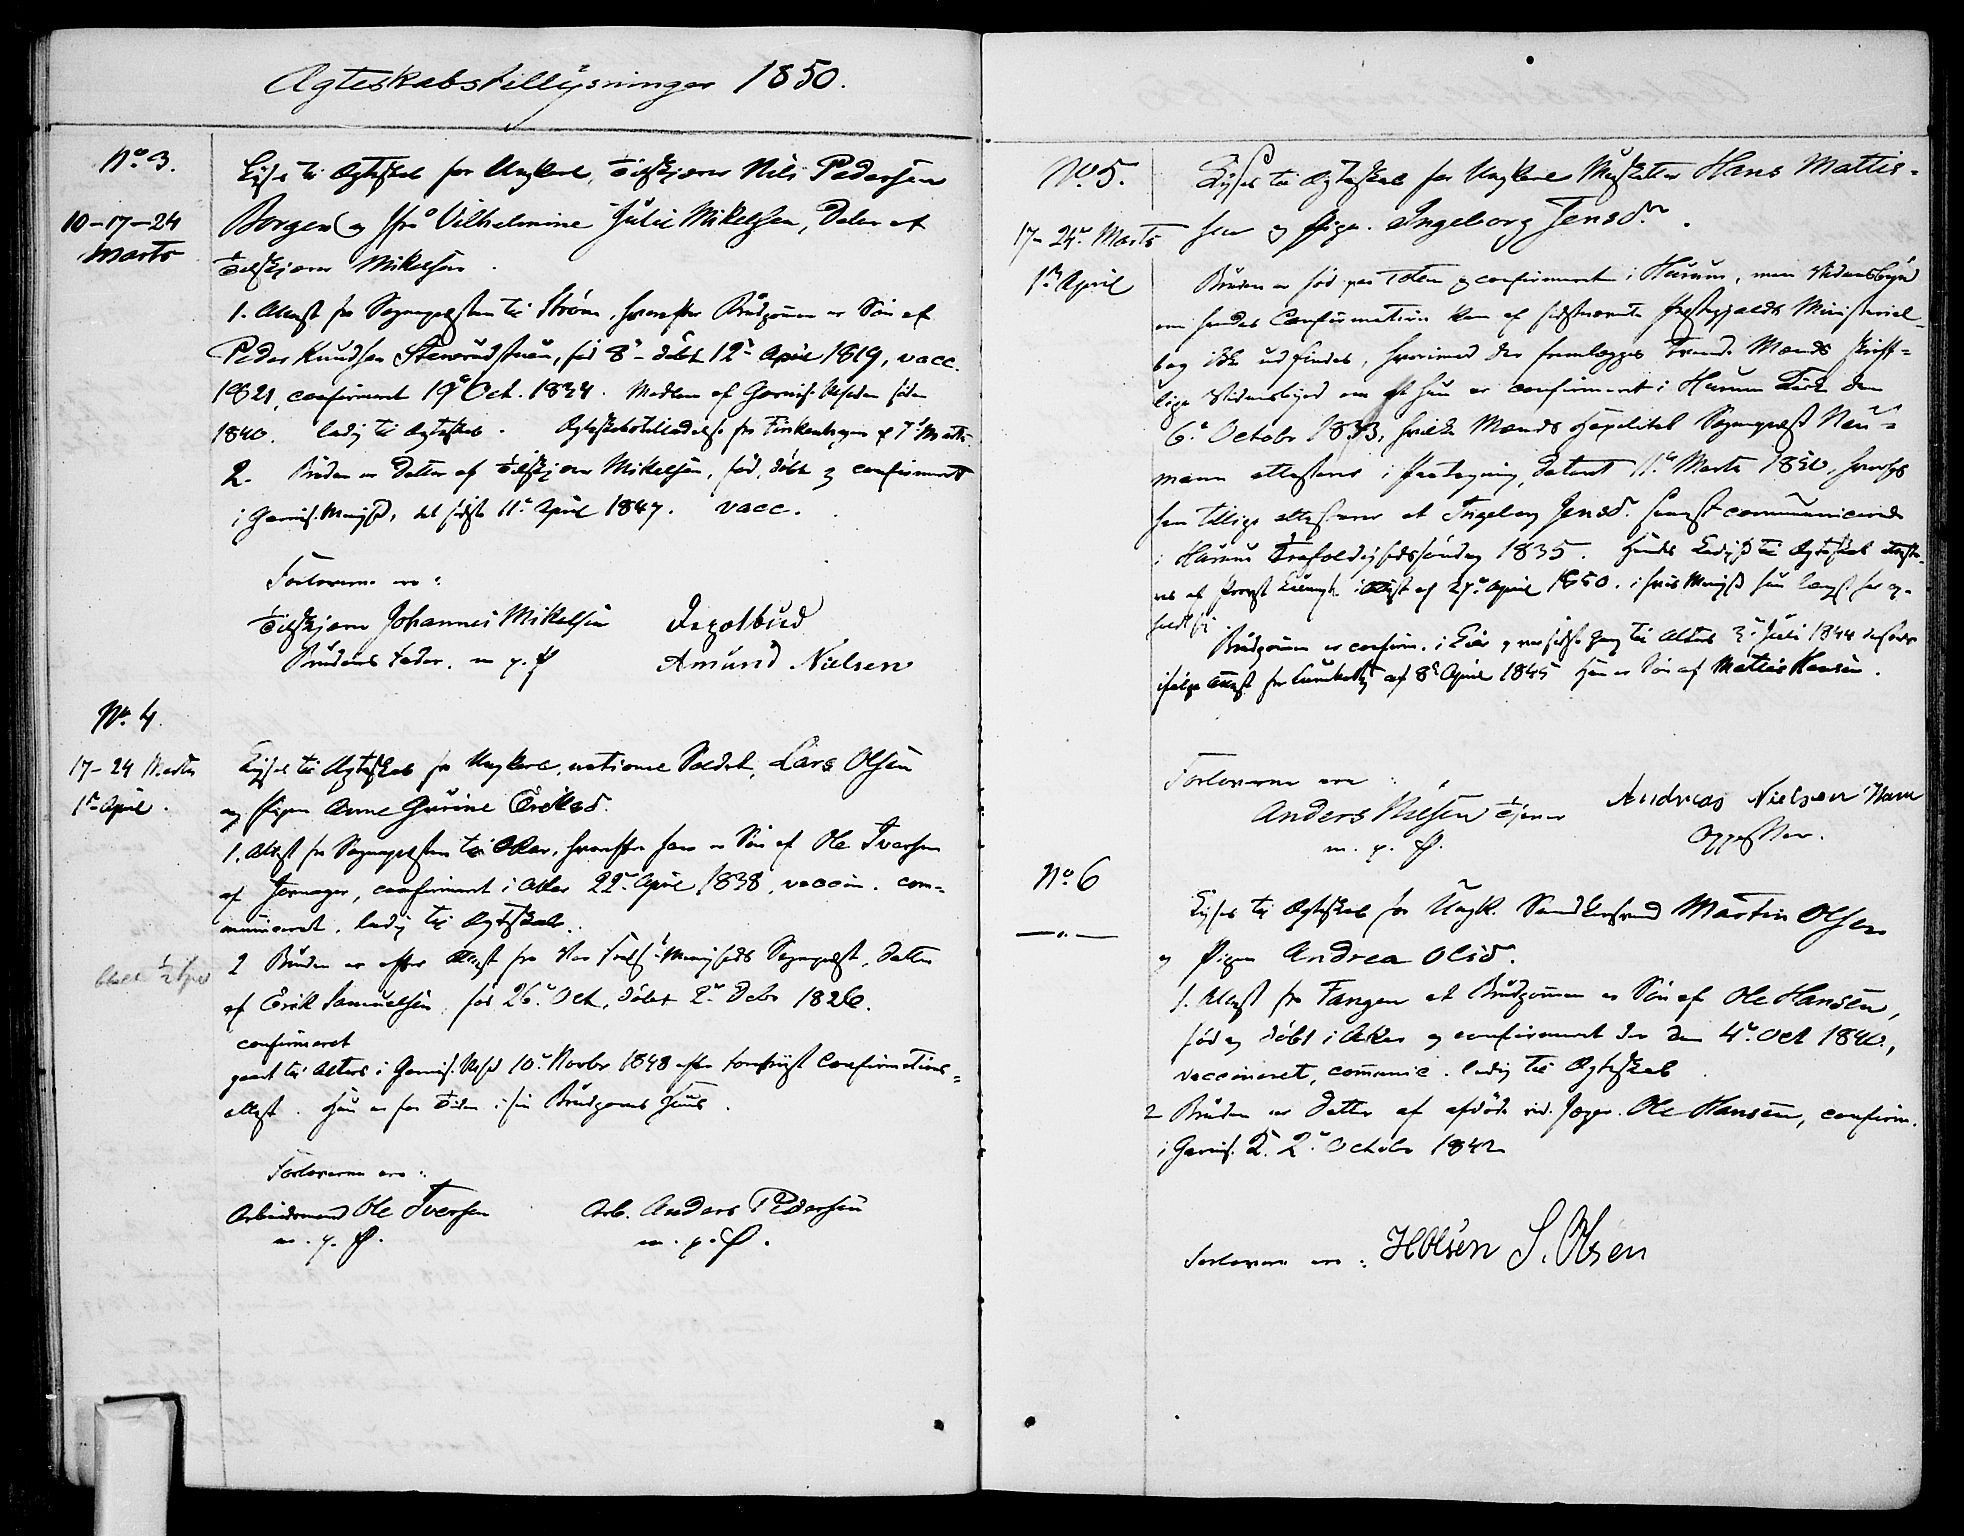 Ægteskabstillysninger 1850.
No 3.
10-17-24
Marts
Lyses til Ægteskab for Ungkarl, Tilskjærer Nils Pedersen
Borgen og Jfr Vilhelmine Julie Mikelsen, Datter af
Tilskjærer Mikelsen.
1. Attest fra Sognepræsten til Strøm, hvorefter Brudgommen er Søn af
Peder Knudsen, fød 8de døbt 12te April 1819, vacc.
1821, confirmeret 19de Oct. 1834. Medlem af Garnis. Mgheden siden
1840. ledig til Ægteskab. Ægteskabstilladelse fra af 7de Marts
2. Bruden er Datter af Tilskjærer Mikelsen, fød, døbt og confirmeret
i Garnis. Mengh, det sidste 11te April 1847. vacc.
Forloverne ere:
Tilskjærer Johannes Mikelsen
Brudens Fader. m. p. P
Amund Nielsen
No. 4.
17-24 Marts
1ste April.
Lyses til Ægteskab for Ungkarl, national Soldat, Lars Olsen
og Pigen Anne Gurine Eriksd.
1. Attest fra Sognepræsten til Aker, hvorefter han er Søn af Ole Iversen
af Jernager, confirmeret i Aker 22de April 1838, vaccin. com=
municeret. ledig til Ægteskab.
2 Bruden er efter Attest fra Vor Frels. Menigheds Sognepræst, Datter
af Erik Samuelsen, fød 26de Oct, døbt 2den Decbr 1826.
confirmeret
gaaet til Alters i Garnis. Mgh 10de Novbr 1848 efter foreviist Confirmations=
attest. Hun er for Tiden i sin Brudgoms Huus.
Forloverne ere:
Arbeidsmand Ole Iversen
m. p. P.
Arb. Anders Pedersen
m. p. P.
No. 5.
17-24de Marts
1ste April
Lyses til Ægteskab for Ungkarl Musketeer Hans Mattis=
sen og Pigen Ingeborg Jensdr.
Bruden er fød paa Toten og confirmeret i Hurum, men Vidnesbyrd
om hendes Confirmation kan af sidstnævnte Præstegjælds Ministerial=
bog ikke udfindes, hvorimod der fremlægges Mænds skrift=
lige Vidnesbyrd om at hun er confirmeret i Hurum Kirke den
6te October 1833, hvilke Mænds Sognepræst Neu=
mann attesterer i Paategning, dateret 11te Marts 1850, hvorhos
han tillige attesterer at Ingeborg Jensd. senest communicerede
i Hurum Trefoldighedssøndag 1835. Hendes Ledighed til Ægteskab atteste=
res af Provst i Attest af 27de April 1850. i hvis Menighed hun længst har op=
holdt sig.
Brudgommen er confirm. i Eier og var sidste Gang til Alters 3de Juli 1844
ifølge Attest fra af 8de April 1845 Han er Søn af Mattis Hansen.
Forloverne ere:
Anders Nilsen Tjener
m. p. P.
Andreas Nielsen Ham
Oppasser.
No. 6
Lyses til Ægteskab for Ungk. Martin Olsen
og Pigen Andrea Olsd.
1. Attest fra Fangen at Brudgommen er Søn af Ole Hansen,
fød og døbt i Aker og confirmeret der den 4de Oct 1840,
vaccineret, communic. ledig til Ægteskab
2 Bruden er Datter af afdøde rid. Jæger Ole Hansen, confirm.
i Garnis. 2. October 1842
Forloverne ere: HOlsen S. Olsen